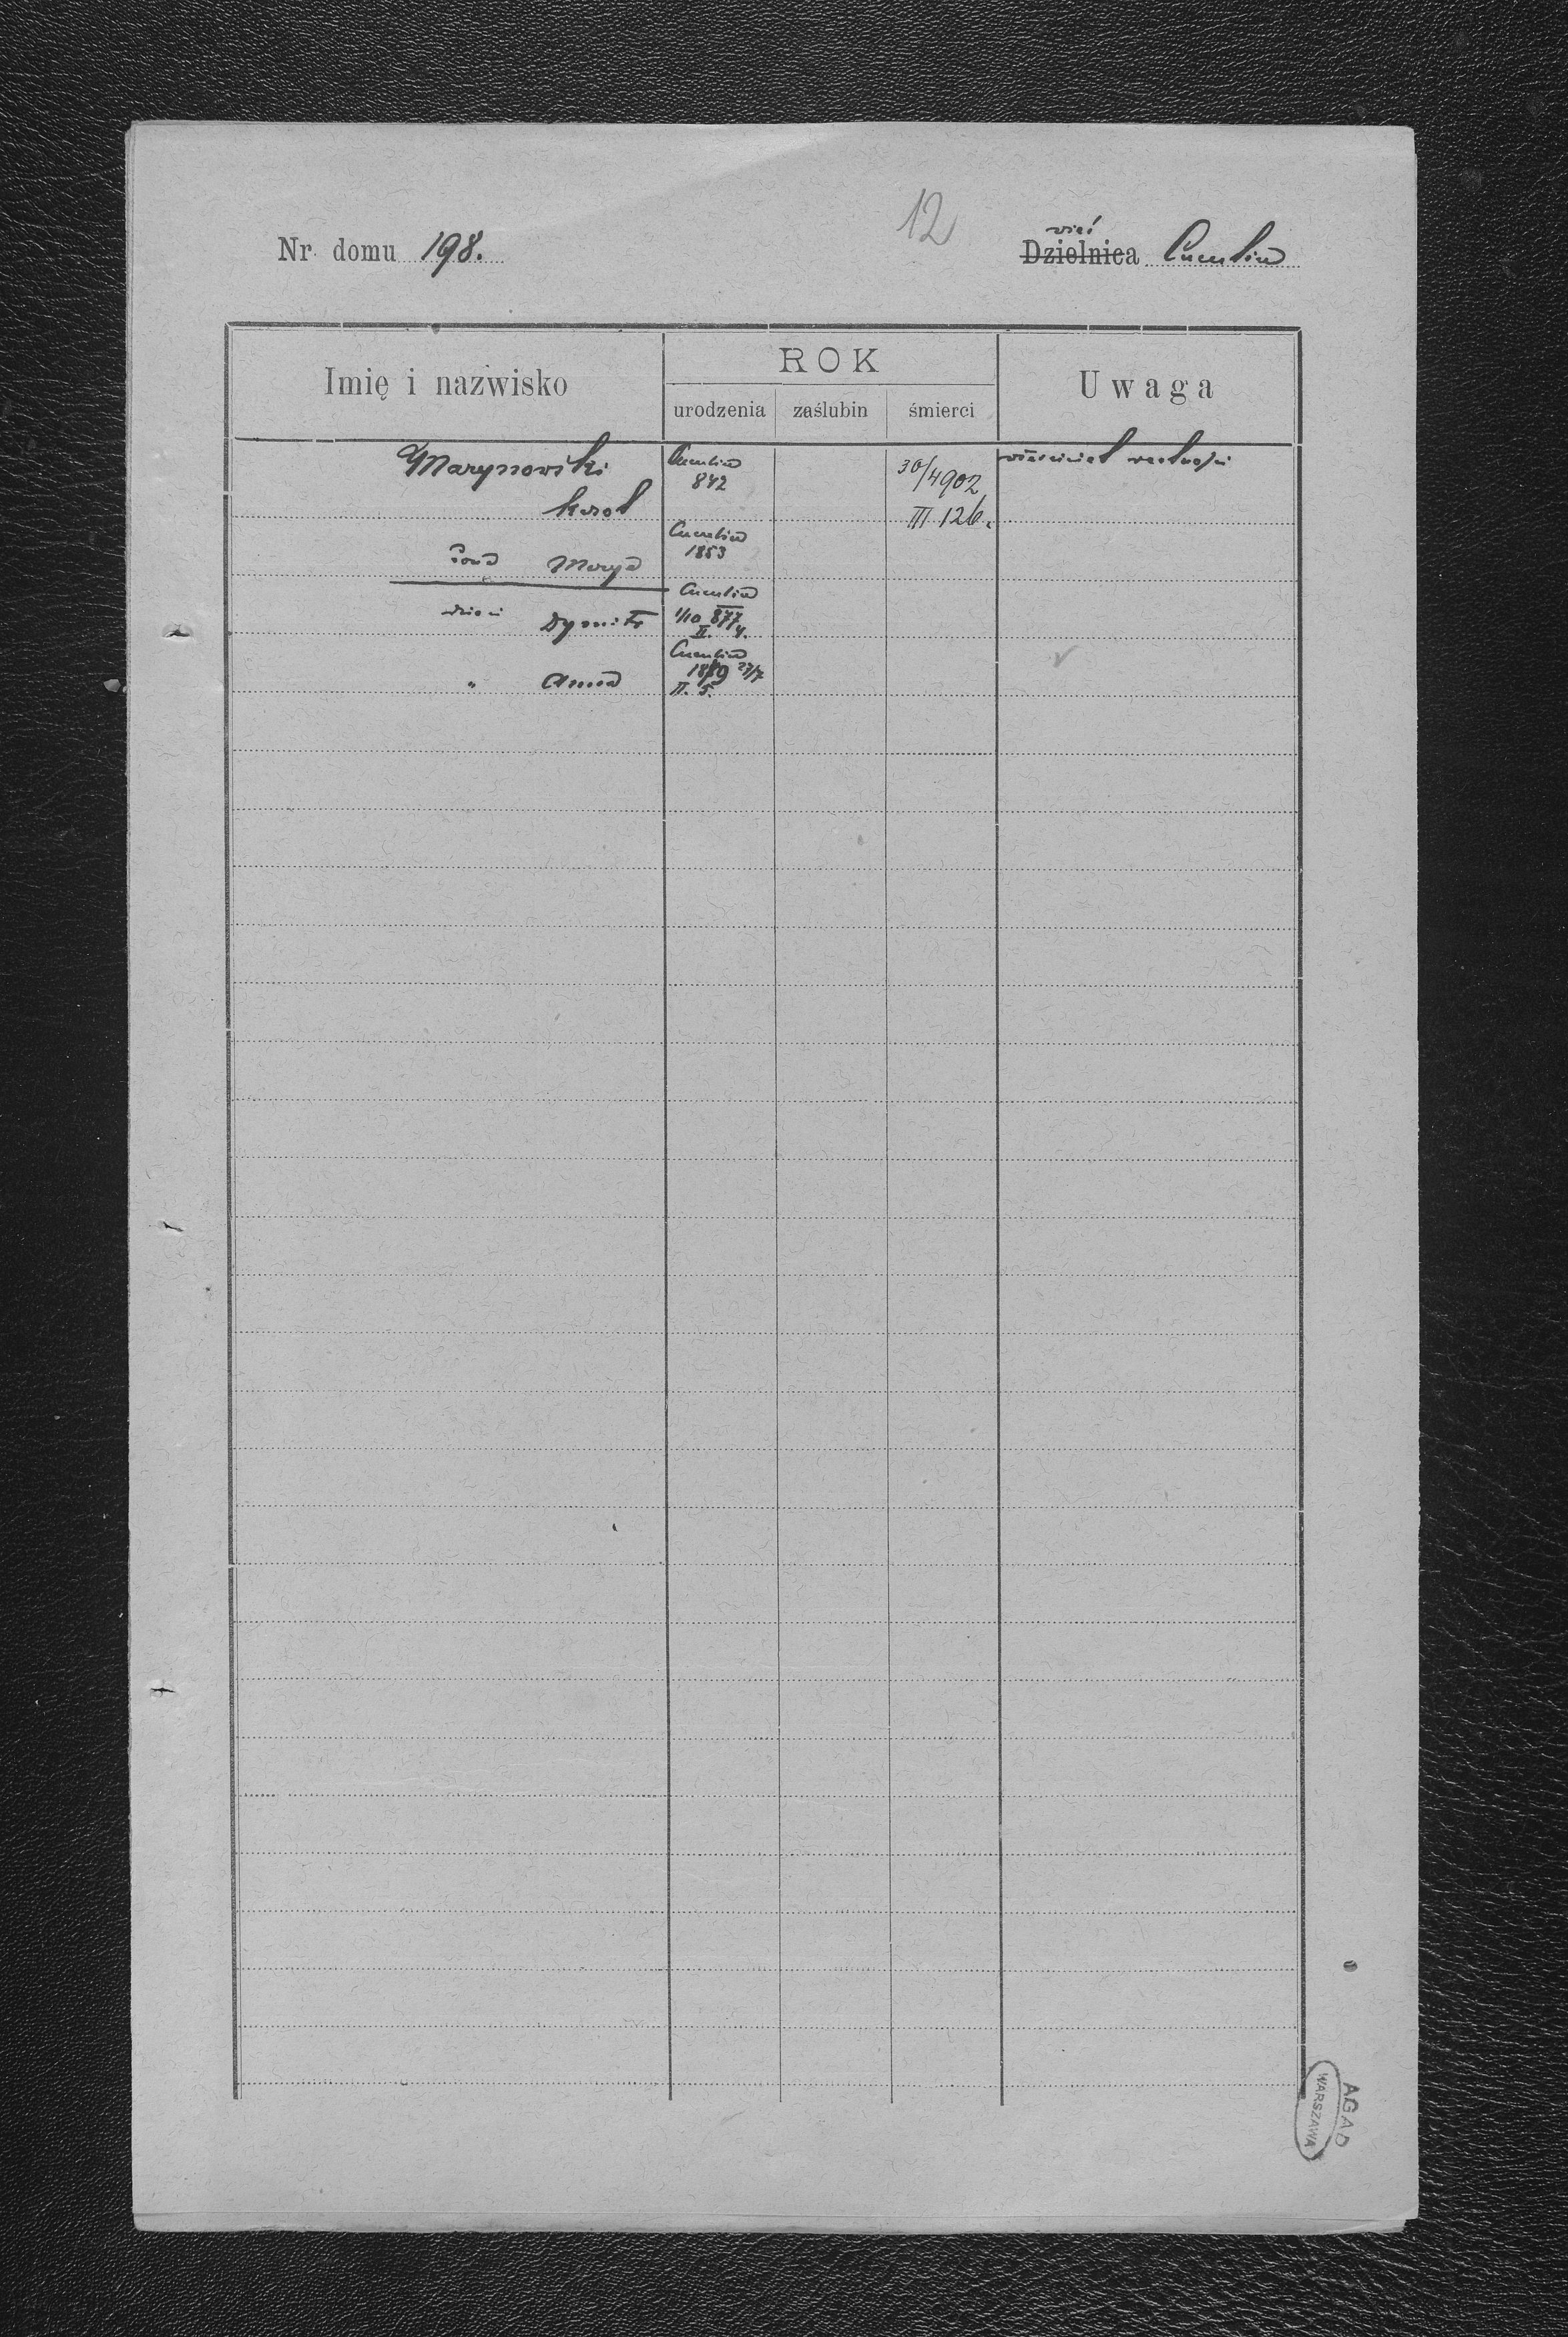 12
Nr. domu 198.
wieś
Dzielnica Cucułów
Imię i nazwisko
ROK
urodzenia zaślubin śmierci
Uwaga
Marynowski
842
30/4 902
właściciel realności
Karol
III 126.
1853
żona Marya
dzieci Dymitr
1/10 877
II. 4.
" Anna
1889 27/7
II. 5.
AGAD
WARSZAWA